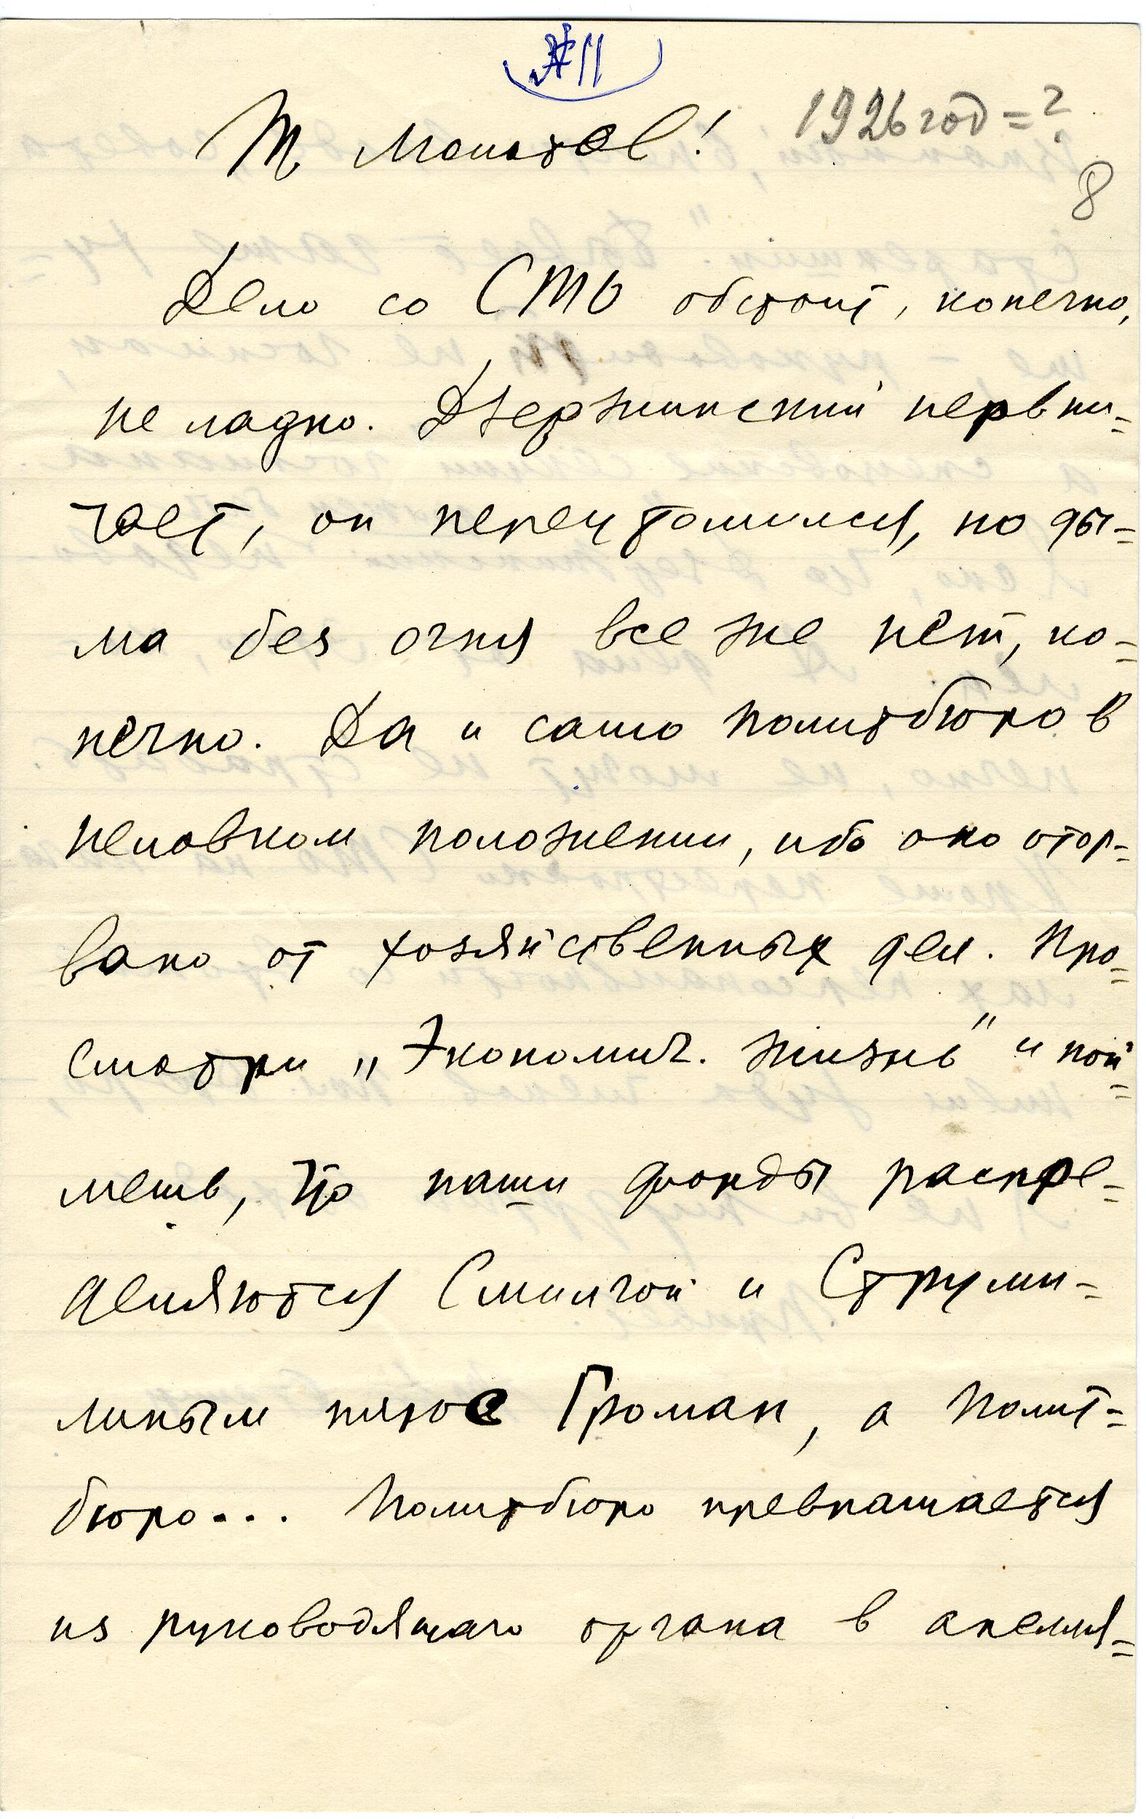 № 11
1926 год = ?
8
Т. Молотов!
Дело со СТО обстоит, конечно,
не ладно. Дзержинский нервни-
чает, он переутомился, но ды-
ма без огня все же нет, ко-
нечно. Да и само Политбюро в
неловком положении, ибо оно отор-
вано от хозяйственных дел. Про-
смотри „Экономич. Жизнь" и пой-
мешь, что наши фонды распре-
деляются Смилгой и Струми-
линым плюс Громан, а Полит-
бюро... Политбюро превращается
из руководящаго органа в апелля-